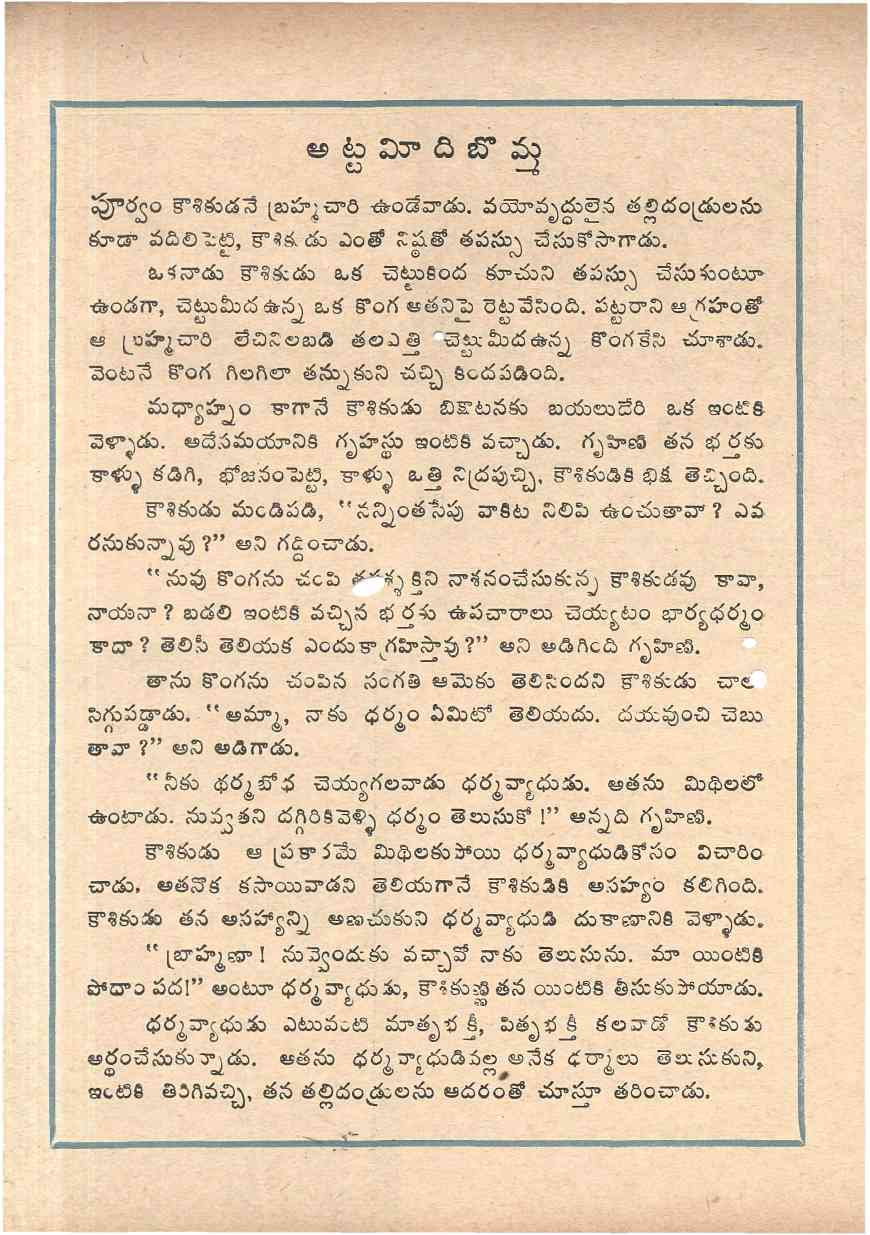 అట్టమీదిబొమ్మ
పూర్వం కౌశికుడనే బ్రహ్మచారి ఉండేవాడు. వయోవృద్ధులైన తల్లిదండ్రులను
కూడా వదిలిపెట్టి, కౌశికుడు ఎంతో నిష్ఠతో తపస్సు చేసుకోసాగాడు.
ఒకనాడు కౌశికుడు ఒక చెట్టుకింద కూచుని తపస్సు చేసుకుంటూ
ఉండగా, చెట్టుమీద ఉన్న ఒక కొంగ అతనిపై రెట్టవేసింది. పట్టరాని ఆగ్రహంతో
ఆ బ్రహ్మచారి లేచినిలబడి తలఎత్తి చెట్టుమీదఉన్న కొంగకేసి చూశాడు.
వెంటనే కొంగ గిలగిలా తన్నుకుని చచ్చి కిందపడింది.
మధ్యాహ్నం కాగానే కౌశికుడు బిక్షాటనకు బయలుదేరి ఒక ఇంటికి
వెళ్ళాడు. అదేసమయానికి గృహస్థు ఇంటికి వచ్చాడు. గృహిణి తన భర్తకు
కాళ్ళు కడిగి, భోజనంపెట్టి, కాళ్ళు ఒత్తి నిద్రపుచ్చి, కౌశికుడికి భిక్ష తెచ్చింది.
కౌశికుడు మండిపడి, “నన్నింతసేపు వాకిట నిలిపి ఉంచుతావా? ఎవ
రనుకున్నావు?” అని గద్దించాడు.
“నువు కొంగను చంపి తపశ్శక్తిని నాశనంచేసుకున్న కౌశికుడవు కావా,
నాయనా? బడలి ఇంటికి వచ్చిన భర్తకు ఉపచారాలు చెయ్యటం భార్యధర్మం
కాదా? తెలిసీ తెలియక ఎందుకాగ్రహిస్తావు?” అని అడిగింది గృహిణి.
తాను కొంగను చంపిన సంగతి ఆమెకు తెలిసిందని కౌశికుడు చాల
సిగ్గుపడ్డాడు. “అమ్మా, నాకు ధర్మం ఏమిటో తెలియదు. దయవుంచి చెబు
తావా?” అని అడిగాడు.
“నీకు థర్మబోధ చెయ్యగలవాడు ధర్మవ్యాధుడు. అతను మిథిలలో
ఉంటాడు. నువ్వతని దగ్గిరికివెళ్ళి ధర్మం తెలుసుకో!” అన్నది గృహిణి.
కౌశికుడు ఆ ప్రకారమే మిథిలకుపోయి ధర్మవ్యాధుడికోసం విచారిం
చాడు. అతనొక కసాయివాడని తెలియగానే కౌశికుడికి అసహ్యం కలిగింది.
కౌశికుడు తన అసహ్యాన్ని అణచుకుని ధర్మవ్యాధుడి దుకాణానికి వెళ్ళాడు.
“బ్రాహ్మణా! నువ్వెందుకు వచ్చావో నాకు తెలుసును. మా యింటికి
పోదాం పద!” అంటూ ధర్మవ్యాధుడు, కౌశికుణ్ణి తన యింటికి తీసుకుపోయాడు.
ధర్మవ్యాధుడు ఎటువంటి మాతృభక్తీ, పితృభక్తీ కలవాడో కౌశికుడు
అర్థంచేసుకున్నాడు. అతను ధర్మవ్యాధుడివల్ల అనేక ధర్మాలు తెలుసుకుని,
ఇంటికి తిరిగివచ్చి, తన తల్లిదండ్రులను ఆదరంతో చూస్తూ తరించాడు.